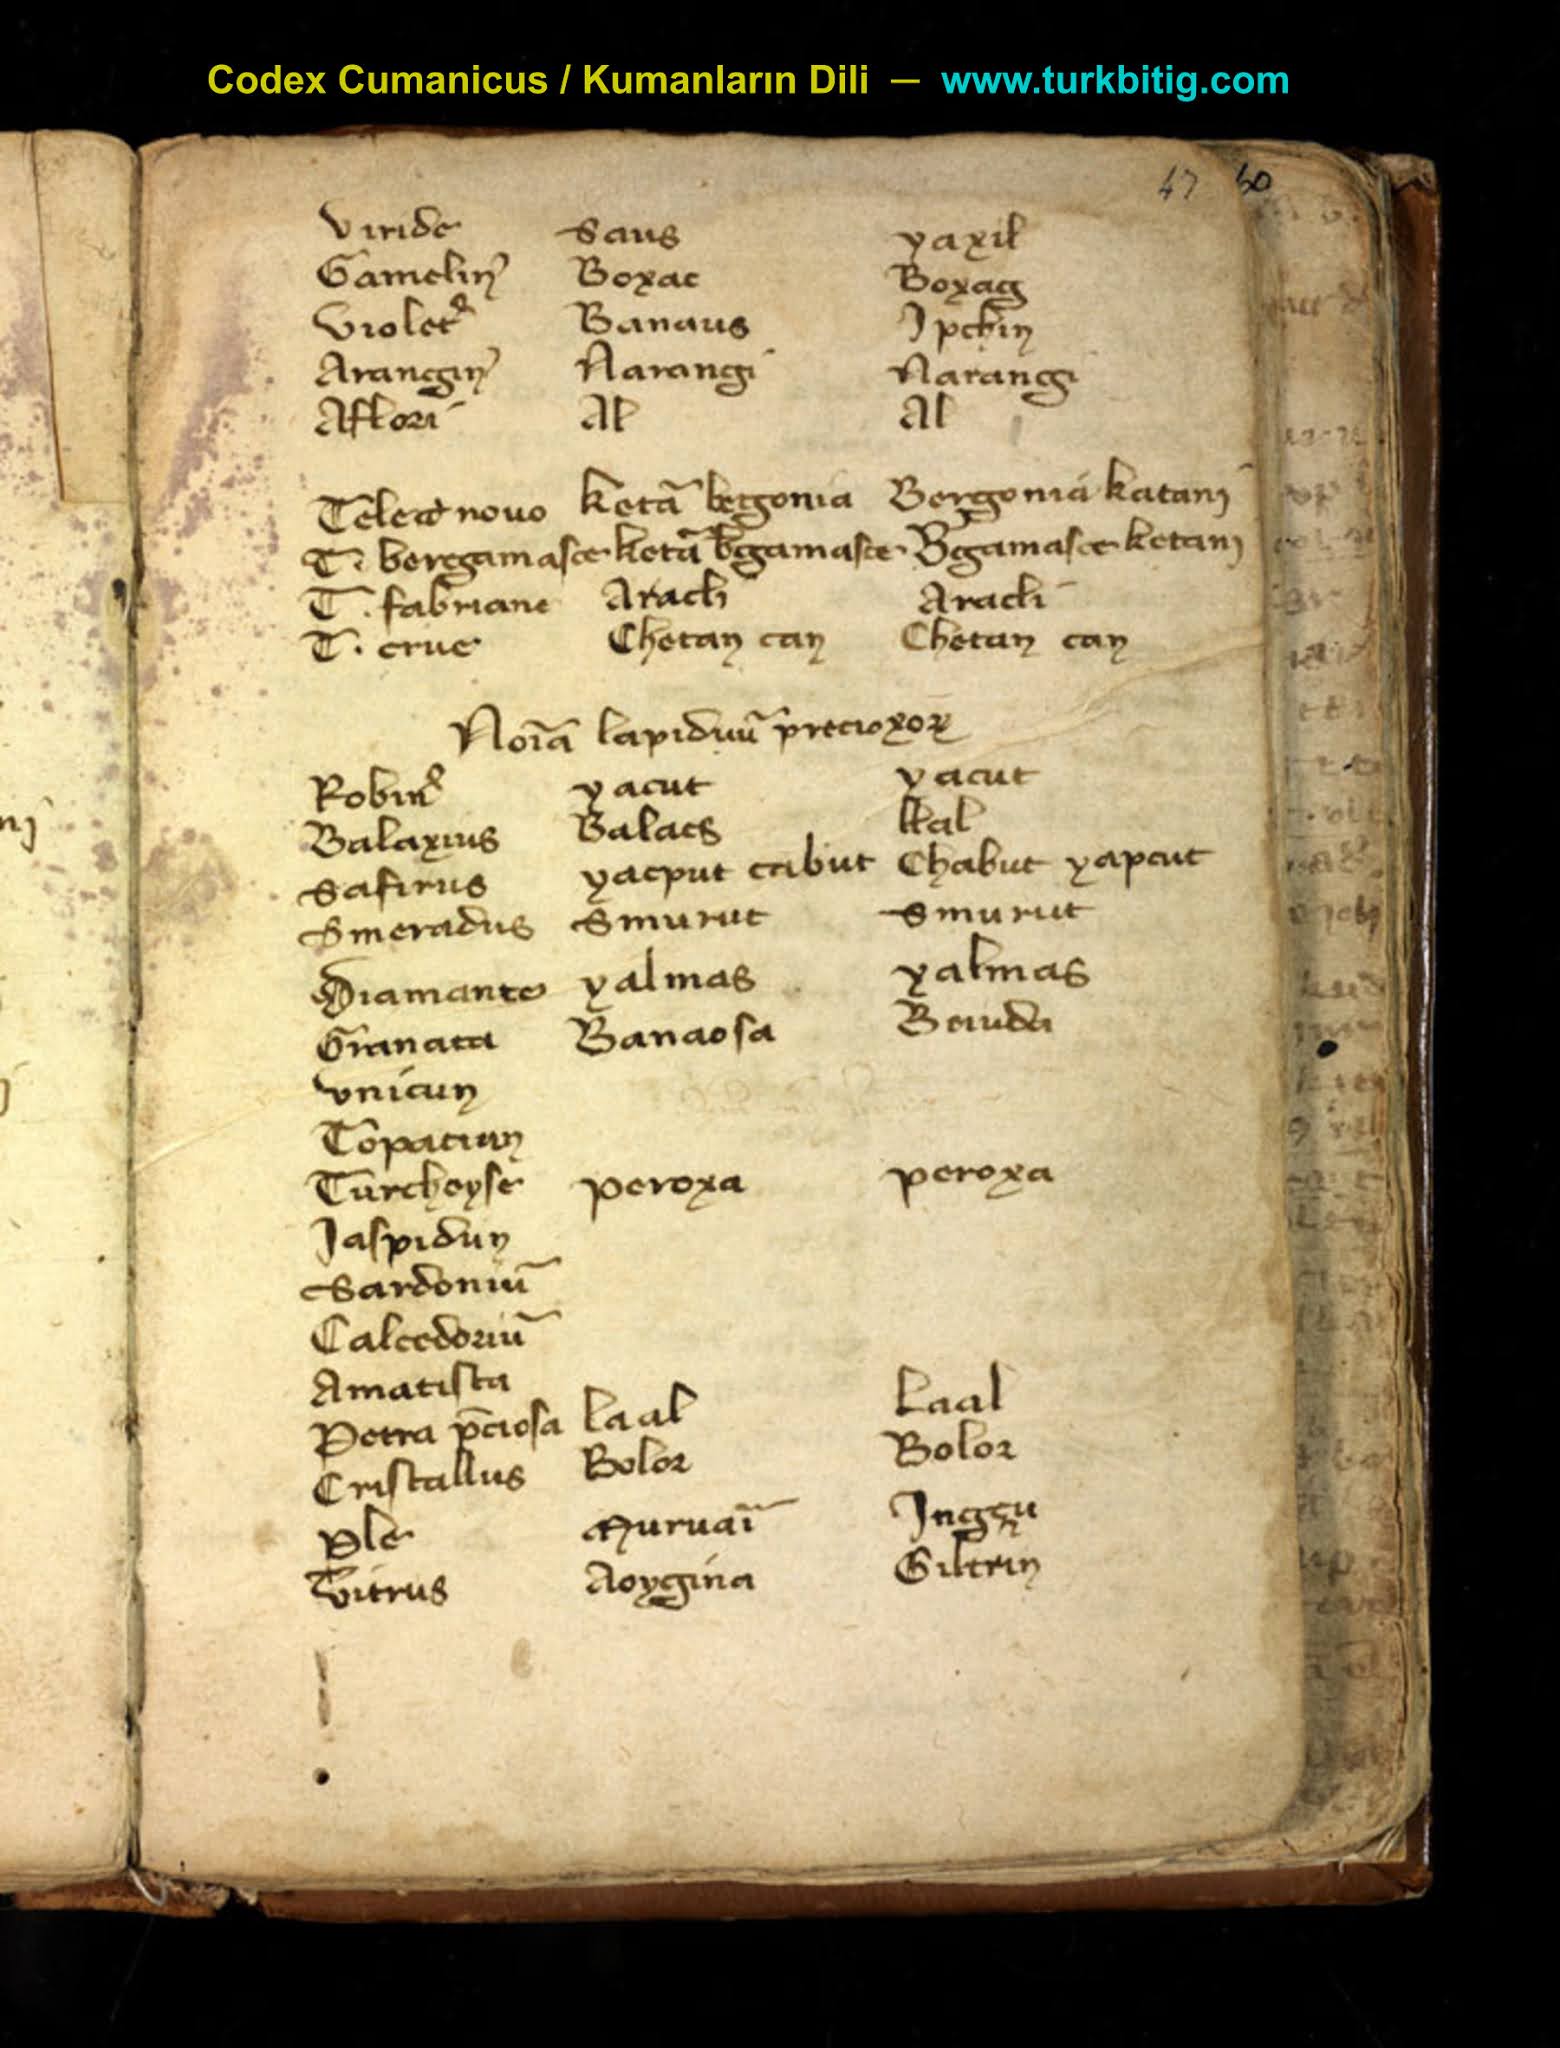 Codex Cumanicus / Kumanların Dili — www.turkbitig.com
47 60
Viride Saus yaxil
Gamelin Boxac Boxag
Violet Banaus Ipchin
Arangin Narangi Narangi
Aflori Al Al
Tele novo ketā bergonia Bergonia katani
T. bergamasce ketā bgamasce Bgamasce ketani
T. fabriane Arach Arach
T. crue Chetan can Chetan can
Noīa lapiduū precioxor
Robin yacut yacut
Balaxius Balacs Lal
Safirus yacput cabut Chabut yapcut
Smeradus Smurut Smurut
Diamante yalmas yalmas
Granata Banaosa
Unicun
Topatiun
Turcheyse peroxa peroxa
Jaspidun
Sardoniū
Calcedoniū
Amatista
Petra p̄ciosa Laal Laal
Cristallus Bolor Bolor
Ple Ingcu
Vitrus Aoygina